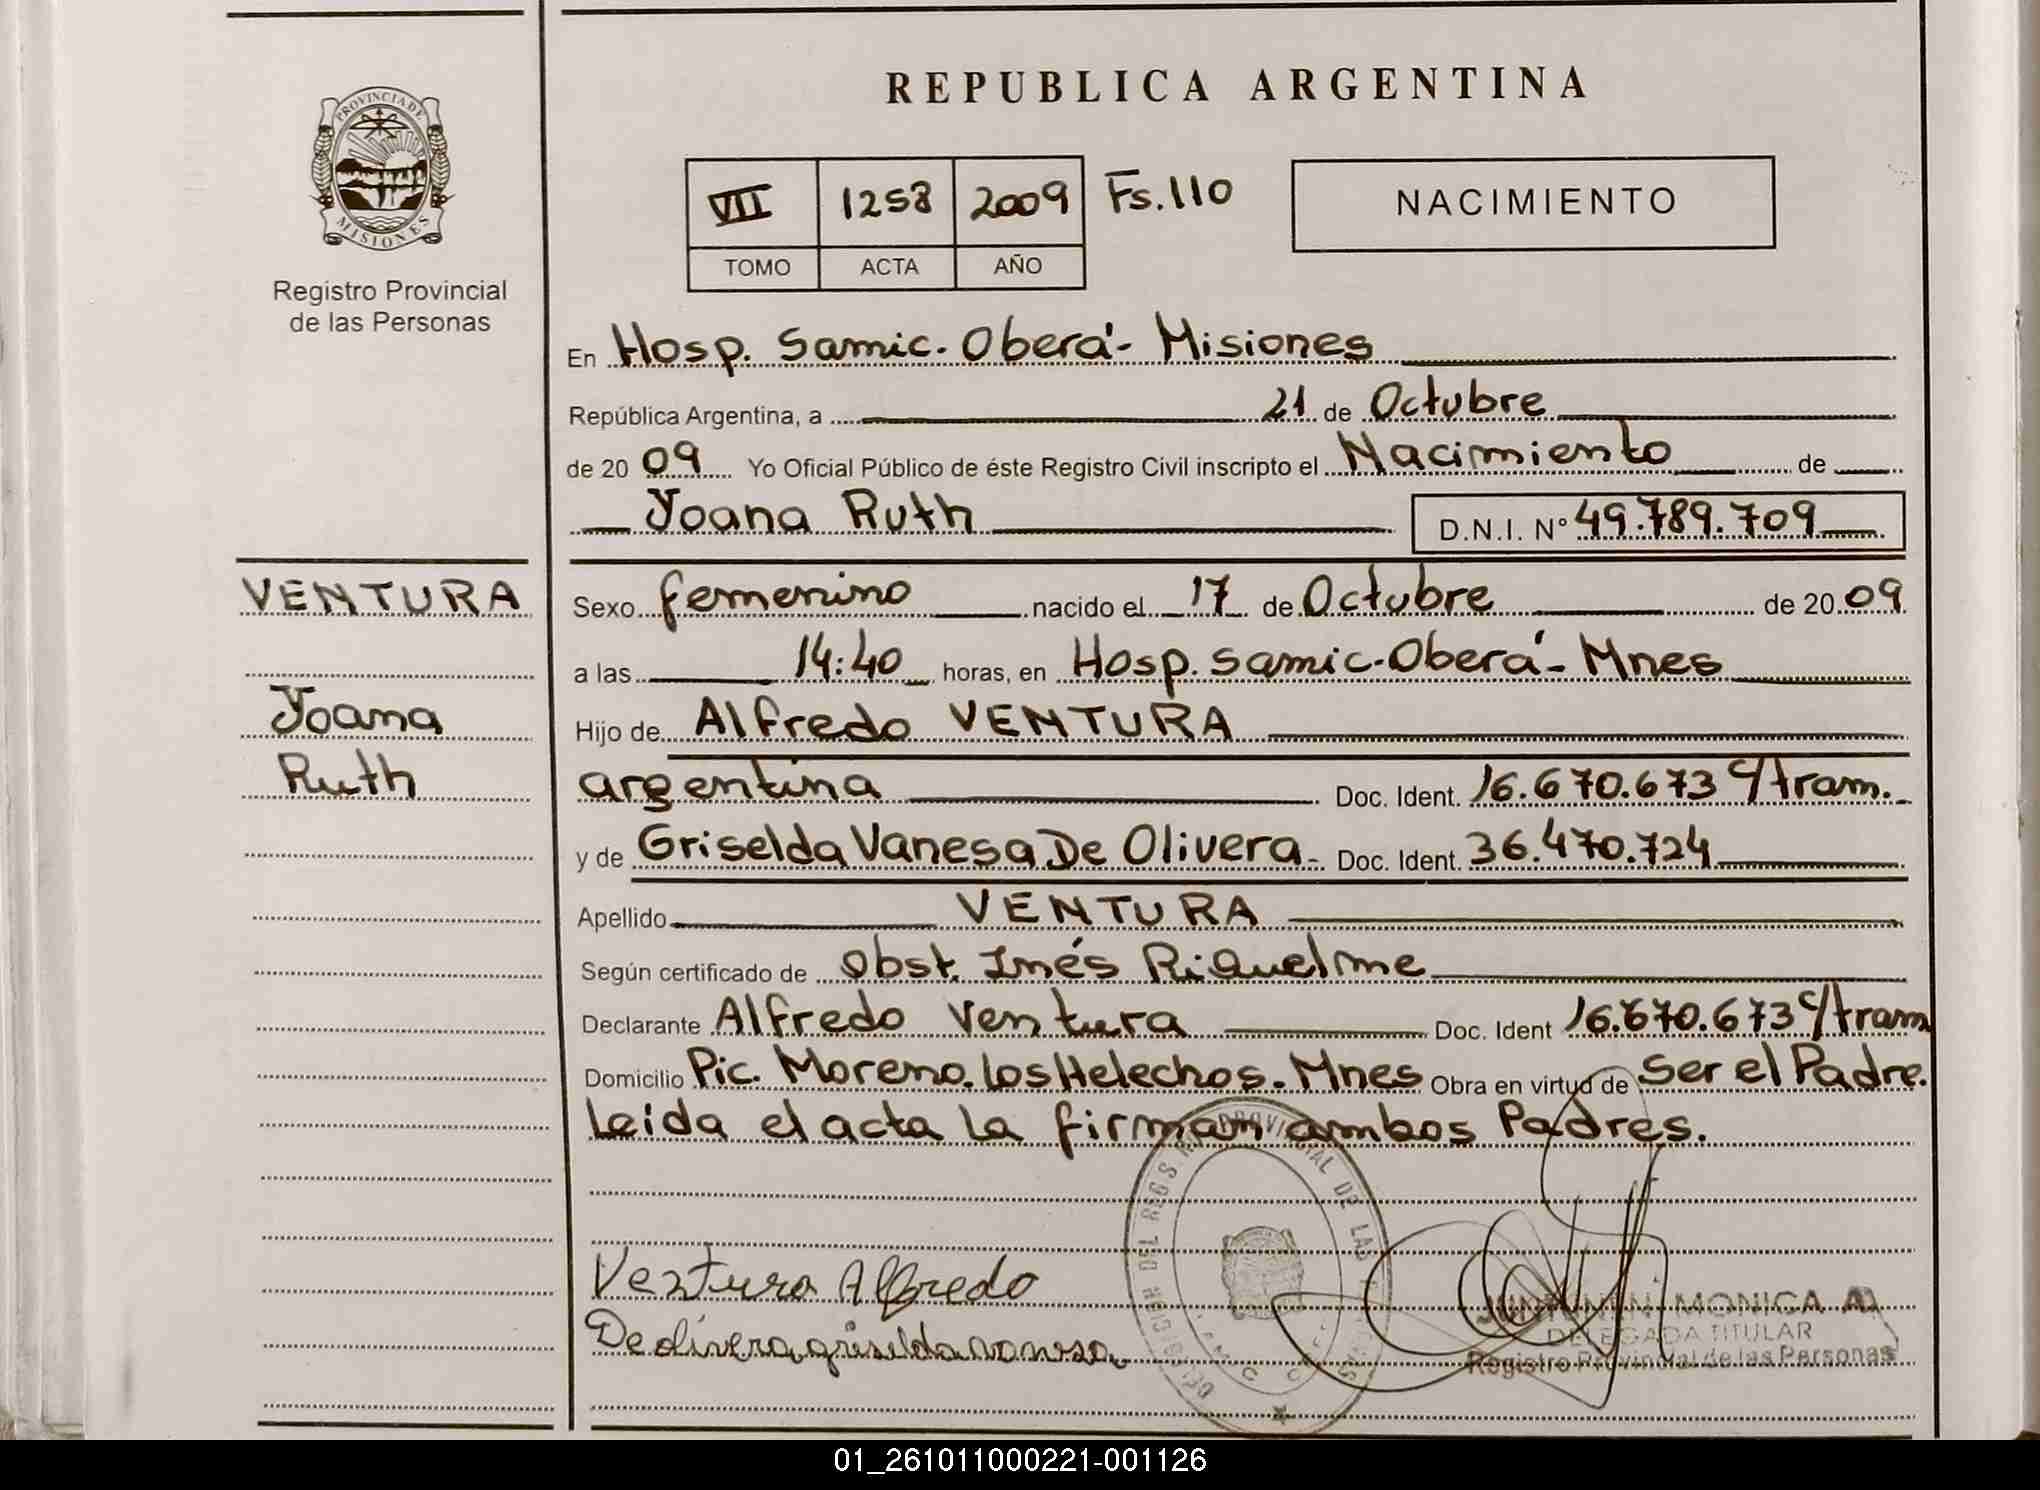 REPUBLICA ARGENTINA
PROVINCIA DE
MISIONES
Registro Provincial
de las Personas
VII 1258 2009 Fs.110
TOMO ACTA AÑO
NACIMIENTO
En Hosp. Samic. Oberá - Misiones
República Argentina, a 21 de Octubre
de 2009 Yo Oficial Público de éste Registro Civil inscripto el Nacimiento de
Yoana Ruth D.N.I. Nº 49.789.709
VENTURA
Yoana
Ruth
Sexo femenino nacido el 17 de Octubre de 2009
a las 14:40 horas, en Hosp. Samic. Oberá - Mnes
Hijo de Alfredo VENTURA
argentina Doc. Ident. 16.670.673 c/tram.
y de Griselda Vanesa De Olivera - Doc. Ident. 36.470.724
Apellido VENTURA
Según certificado de Obst. Inés Riquelme
Declarante Alfredo Ventura Doc. Ident 16.670.673 c/tram
Domicilio Pic. Moreno. Los Helechos. Mnes Obra en virtud de Ser el Padre.
Leida el acta la firman ambos Padres.
Ventura Alfredo
De olivera griselda vanesa
MONICA A.
DELEGADA TITULAR
Registro Provincial de las Personas
01_261011000221-001126